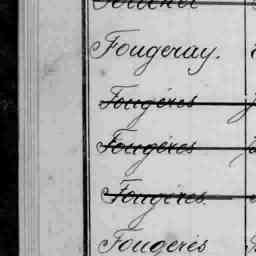 Fougeray.
Fougères
Fougères
Fougères.
Fougerés